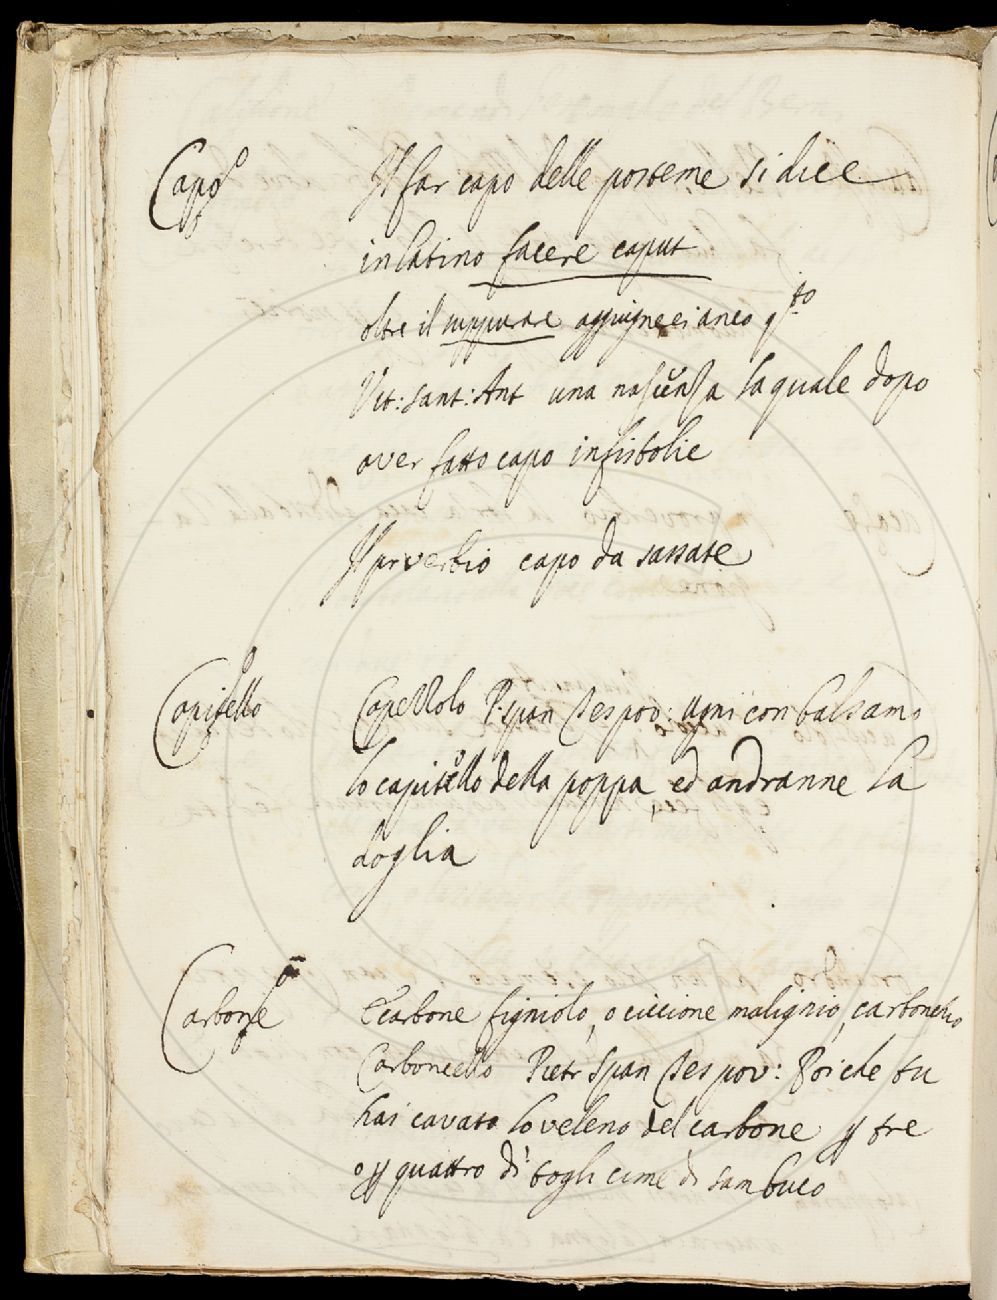 Capo Il far capo delle posteme si dice
in latino facere caput
oltre il suppurare aggiugneci anco q.to
Vit: sant: Ant una nascẽnza la quale dopo
aver fatto capo infistolie
Il prverbio capo da sassate
Capitello Capezzolo P. span Tes pov: ugni con balsamo
lo capitello della poppa, ed andranne la
doglia
Carbone Carbone fignolo, o ciccione malignio, carbonchio
Carboncello Pietr Span Tes pov: Poi che tu
hai cavato lo veleno del carbone p tre
o p quattro dì togli cime di sambuco